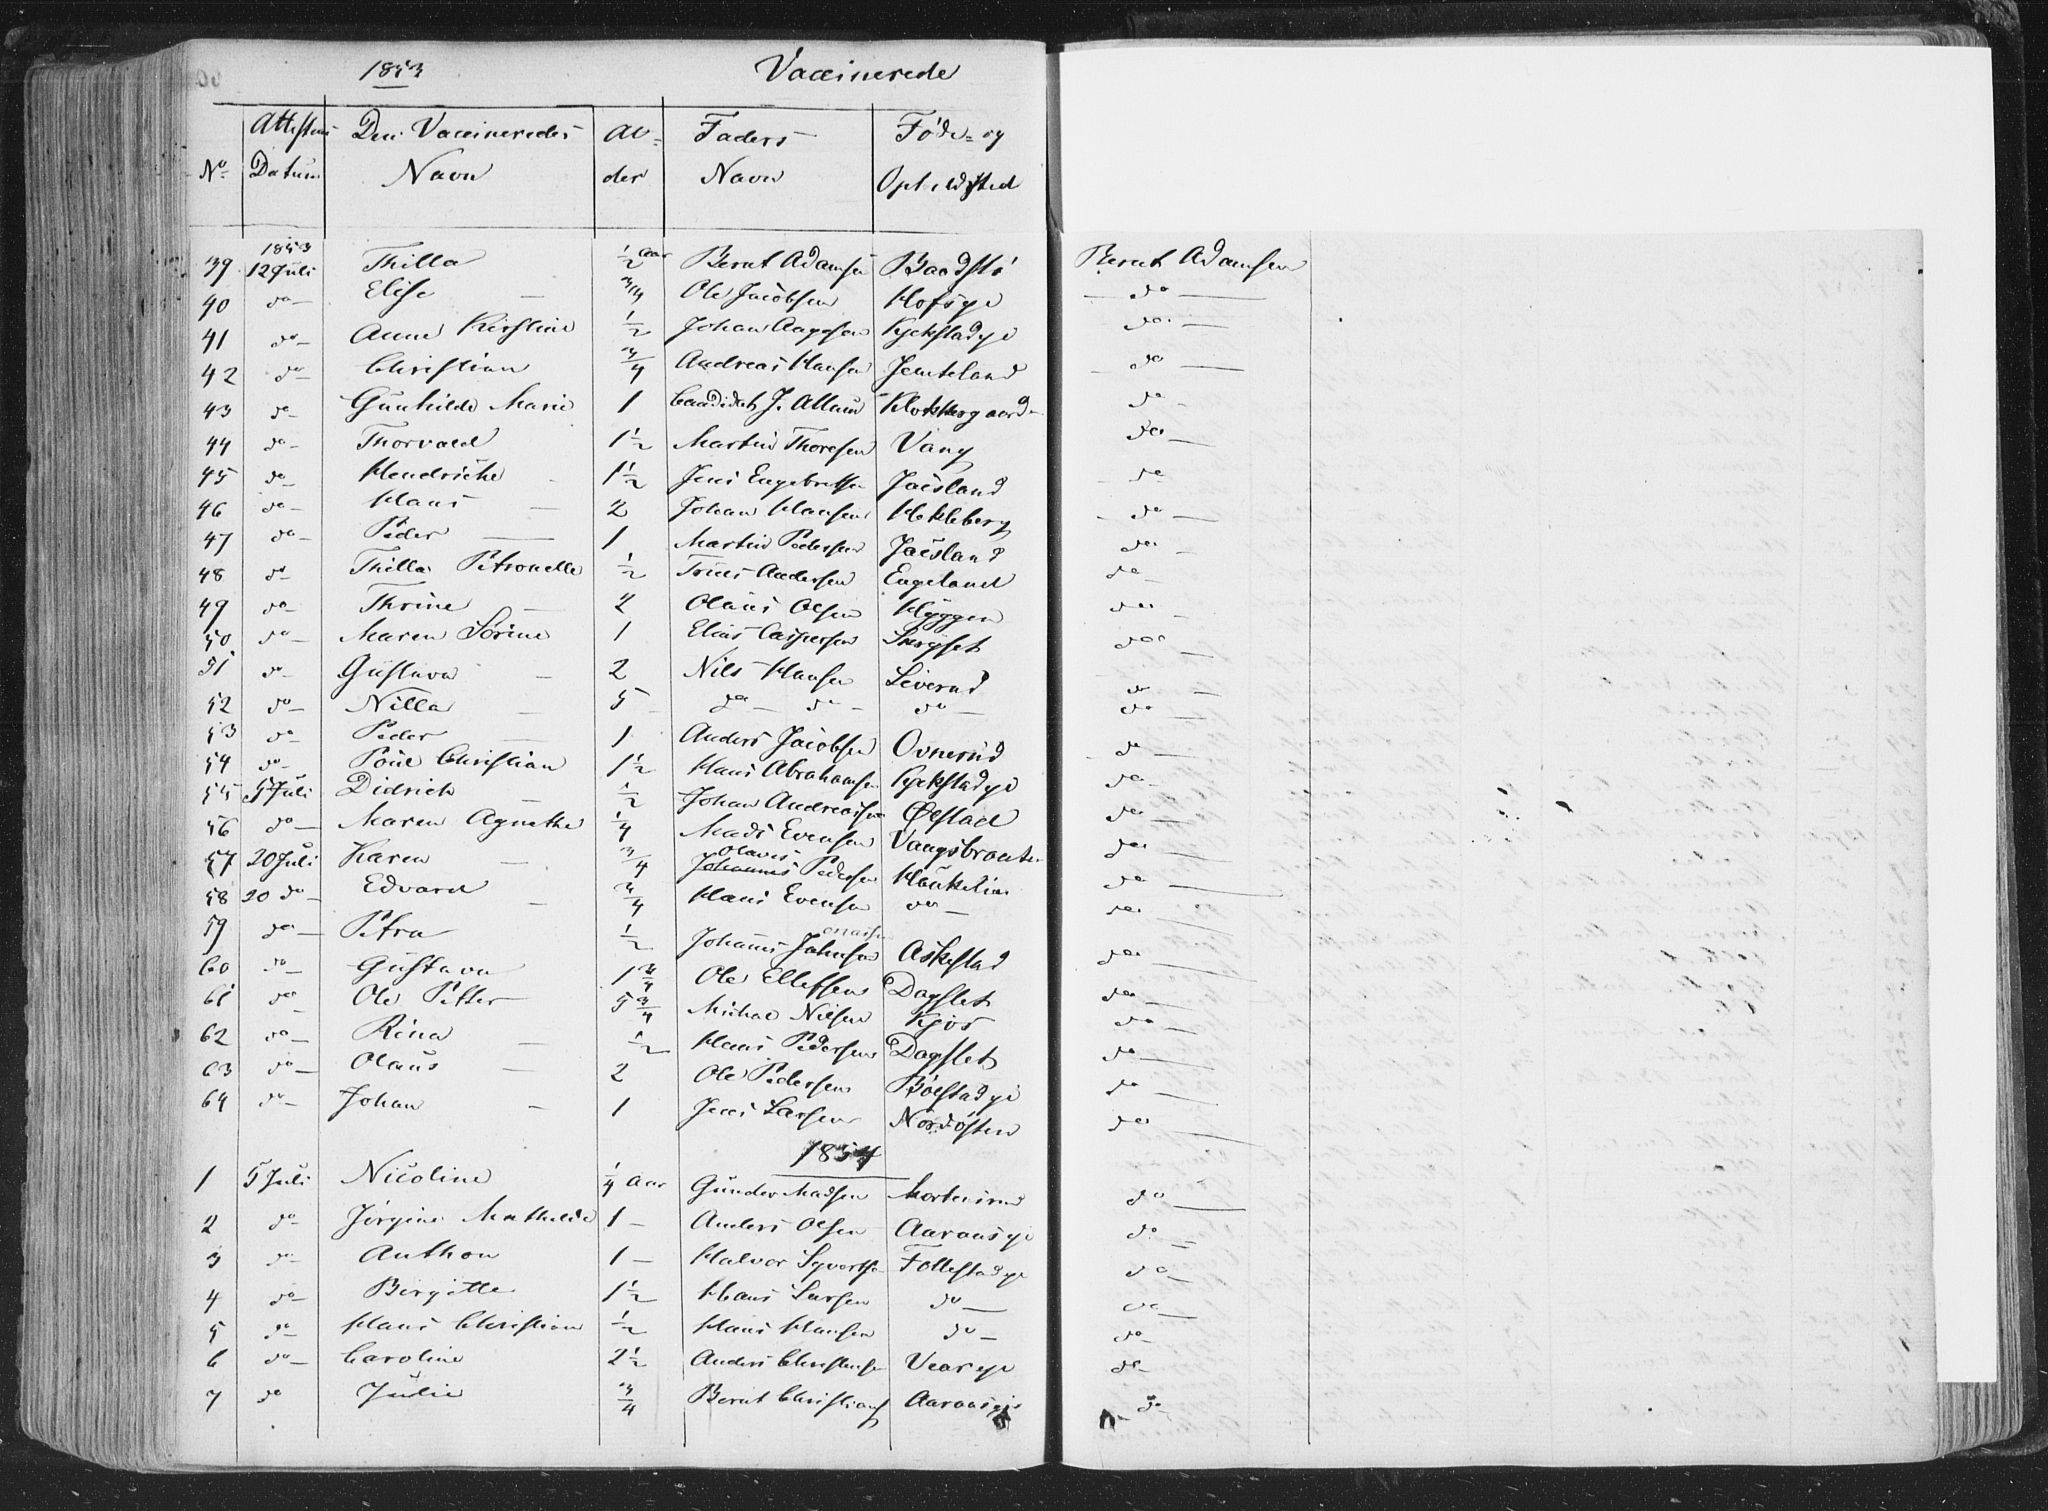 1853 Vaccinerede
No Attestens Datum Den Vaccineredes Navn Alder Faders Navn Føde- og Opholdssted
1853
39 12 Juli Thilla ½ Aar Bernt Adamsen Baadstø Bernt Adamsen
40 do Elise ¾ Ole Jacobsen Hofsye do
41 do Anne Kirstine ½ Johan Aagesen Kjekstadye do
42 do Christian ¾ Andreas Hansen Jemteland do
43 do Gunhilde Marie 1 Candidat J. Klokkergaard do
44 do Thorvald 1½ Martin Thoresen Vang do
45 do Hendrikke 1½ Jens Engebretsen Jaesland do
46 do Hans 2 Johan Hansen Hekleberg do
47 do Peder 1 Martin Pedersen Jaesland do
48 do Thilla Petronelle ½ Truls Andersen Engeland do
49 do Thrine 2 Olaus Olsen Hyggen do
50 do Maren Sørine 1 Elias Caspersen do
51 do Gustava 2 Nils Hansen Liverud do
52 do Nilla 5 do do do do
53 do Peder 1 Anders Jacobsen Ovnerud do
54 do Poul Christian 1½ Hans Abrahamsen Kjekstadye do
55 5 Juli Didrich ½ Johan Andreassen Ølstad do
56 do Maren Agnethe ¼ Mads Evensen Vangsbraaten do
57 20 Juli Karen ¾ Olaves Johannes Pedersen Haukelien do
58 20 do Edvard ¾ Hans Evensen do do
59 do Petra ½ Johannes Johnsen Askestad do
60 do Gustava 1¾ Ole Ellefsen Dagslet do
61 do Ole Petter 5¾ Michael Nilsen Kjøs do
62 do Rina ½ Hans Pedersen Dagslet do
63 do Olaus 2 Ole Pedersen Bølstadye do
64 do Johan 1 Jens Larsen Nordøsten do
1854
1 5 Juli Nicoline ¼ Aar Gunder Madsen Mortensrud do
2 do Jørgine Mathilde 1 Anders Olsen Aarausye do
3 do Anthon 1 Halvor Syvertsen Follestadye do
4 do Birgitte 1½ Hans Larsen do do
5 do Hans Christian ½ Hans Hansen do do
6 do Caroline 2½ Anders Christensen Vearye do
7 do Julie ¾ Bernt Christians Aarausye do